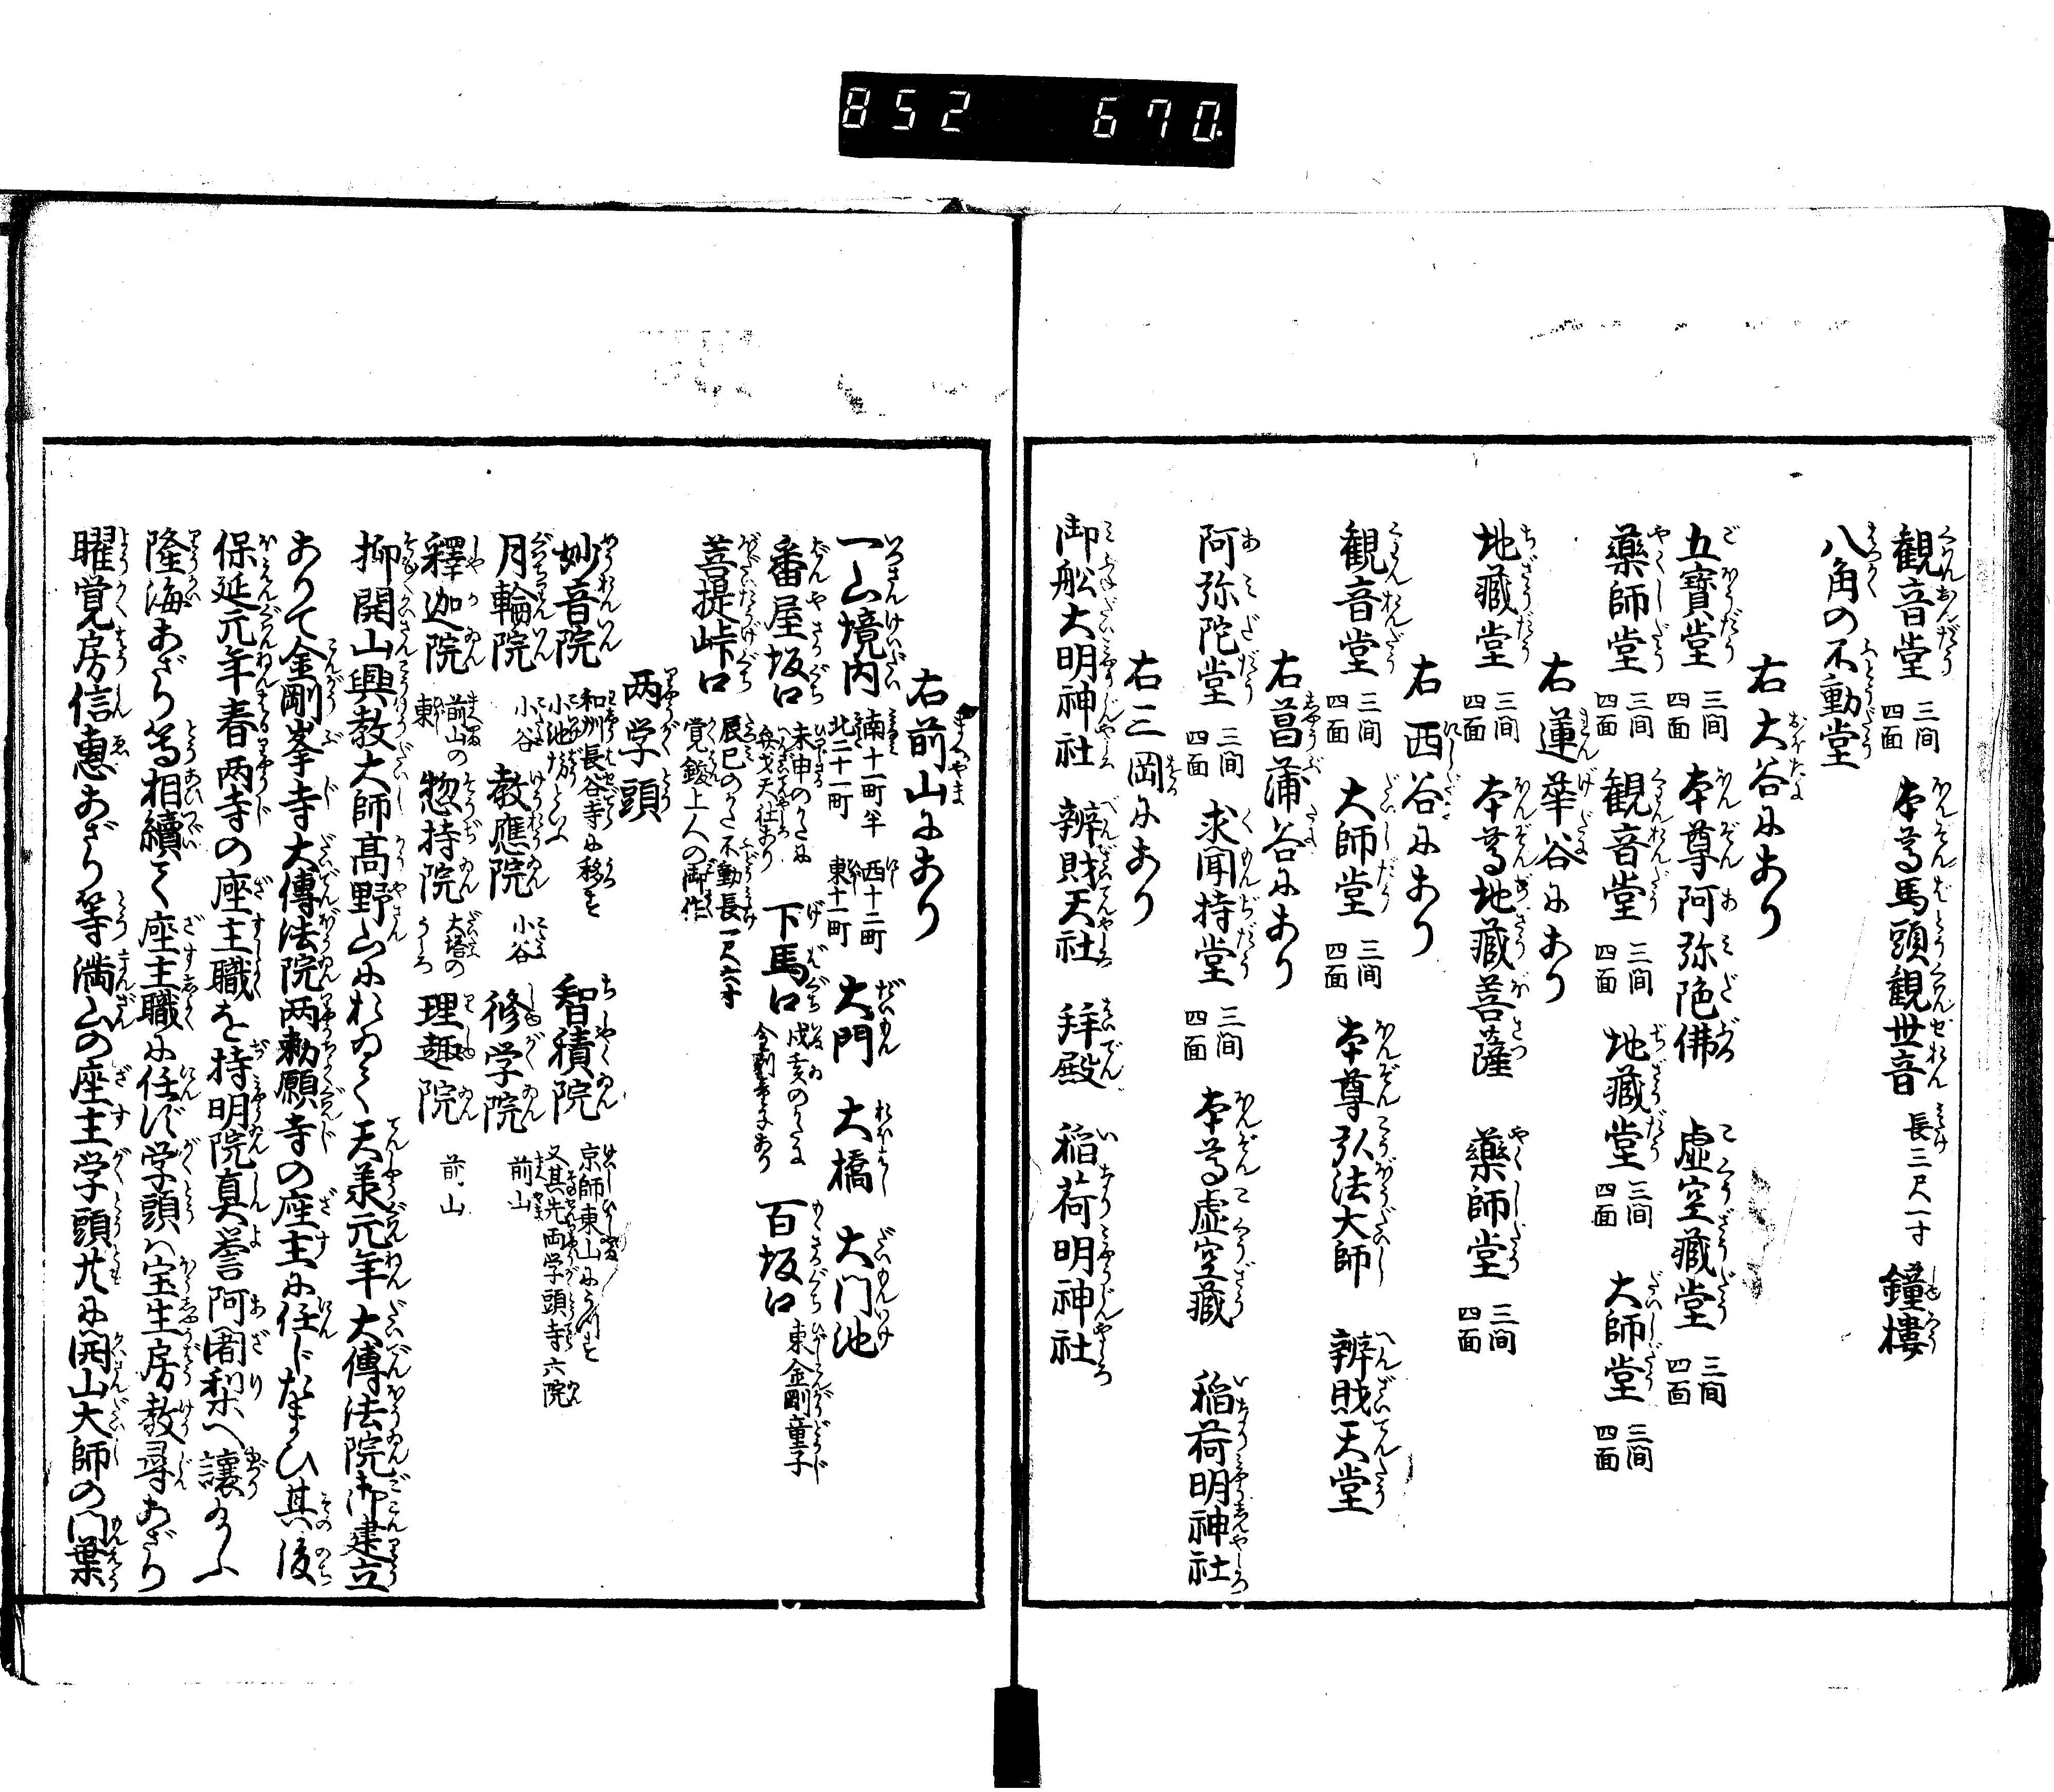 852 670
観音堂 三间四面 本尊馬頭観世音 長三尺一寸 鐘樓
八角の不動堂
右大谷にあり
五寳堂 三间四面 本尊阿弥陁佛 虚空藏堂 三间四面
薬師堂 三间四面 観音堂 三间四面 地藏堂 三间四面 大師堂 三间四面
右蓮華谷にあり
地藏堂 三间四面 本尊地藏菩薩 薬師堂 三间四面
右西谷にあり
観音堂 三间四面 大師堂 三间四面 本尊弘法大師 辨財天堂
右菖蒲谷にあり
阿弥陀堂 三间四面 求聞持堂 三间四面 本尊虚空藏 稲荷明神社
右三岡にあり
御舩大明神社 辨財天社 拜殿 稲荷明神社
右前山にあり
一山境内 南十一町半 西十二町 北二十一町 東十一町 大門 大橋 大门池
番屋坂口 未申のかたに弁才天社あり 下馬口 戌亥のかたに金剛童子あり 百坂口 東金剛童子
菩提峠口 辰巳のかた不動長一尺六寸覚鑁上人の御作
两学頭
妙音院 和州長谷寺に移す小池坊といふ 智積院 京師東山にうつす又其先両学頭寺六院
月輪院 小谷 教應院 小谷 修学院 前山
釋迦院 前山の東 惣持院 大塔のうしろ 理趣院 前山
抑開山興教大師高野山におゐて天承元年大傳法院御建立
ありて金剛峯寺大傳法院两勅願寺の座主に任じたまひ其後
保延元年春两寺の座主職を持明院真誉阿闍梨へ讓給ふ
隆海あざり等相續て座主職に任ず学頭ハ宝生房教尋あざり
曜覚房信惠あざり等満山の座主学頭共に開山大師の门葉